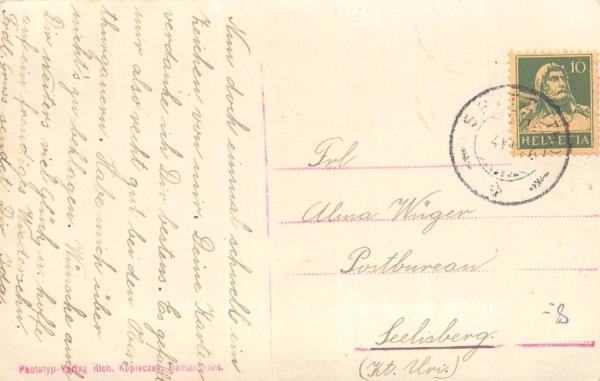 Nun doch einmal schnell ein
Zeichen von mir. Deine Karte
verdanke ich Dir bestens. Es gefällt
mir also recht gut bei den Ober
thurgauern. Habe mich über
nichts zu beklagen. Wünsche auch
Dir weiters viel Glück u. hoffe
auf ein freudiges Wiedersehn.
Frdl. Gruss sendet Dir
Phototyp-Verlag Rich. Kopieczek, Romanshorn.
10
HELVETIA
Frl
Alma Wüger
Postbureau
Seelisberg.
(Kt. Uri.)
-8